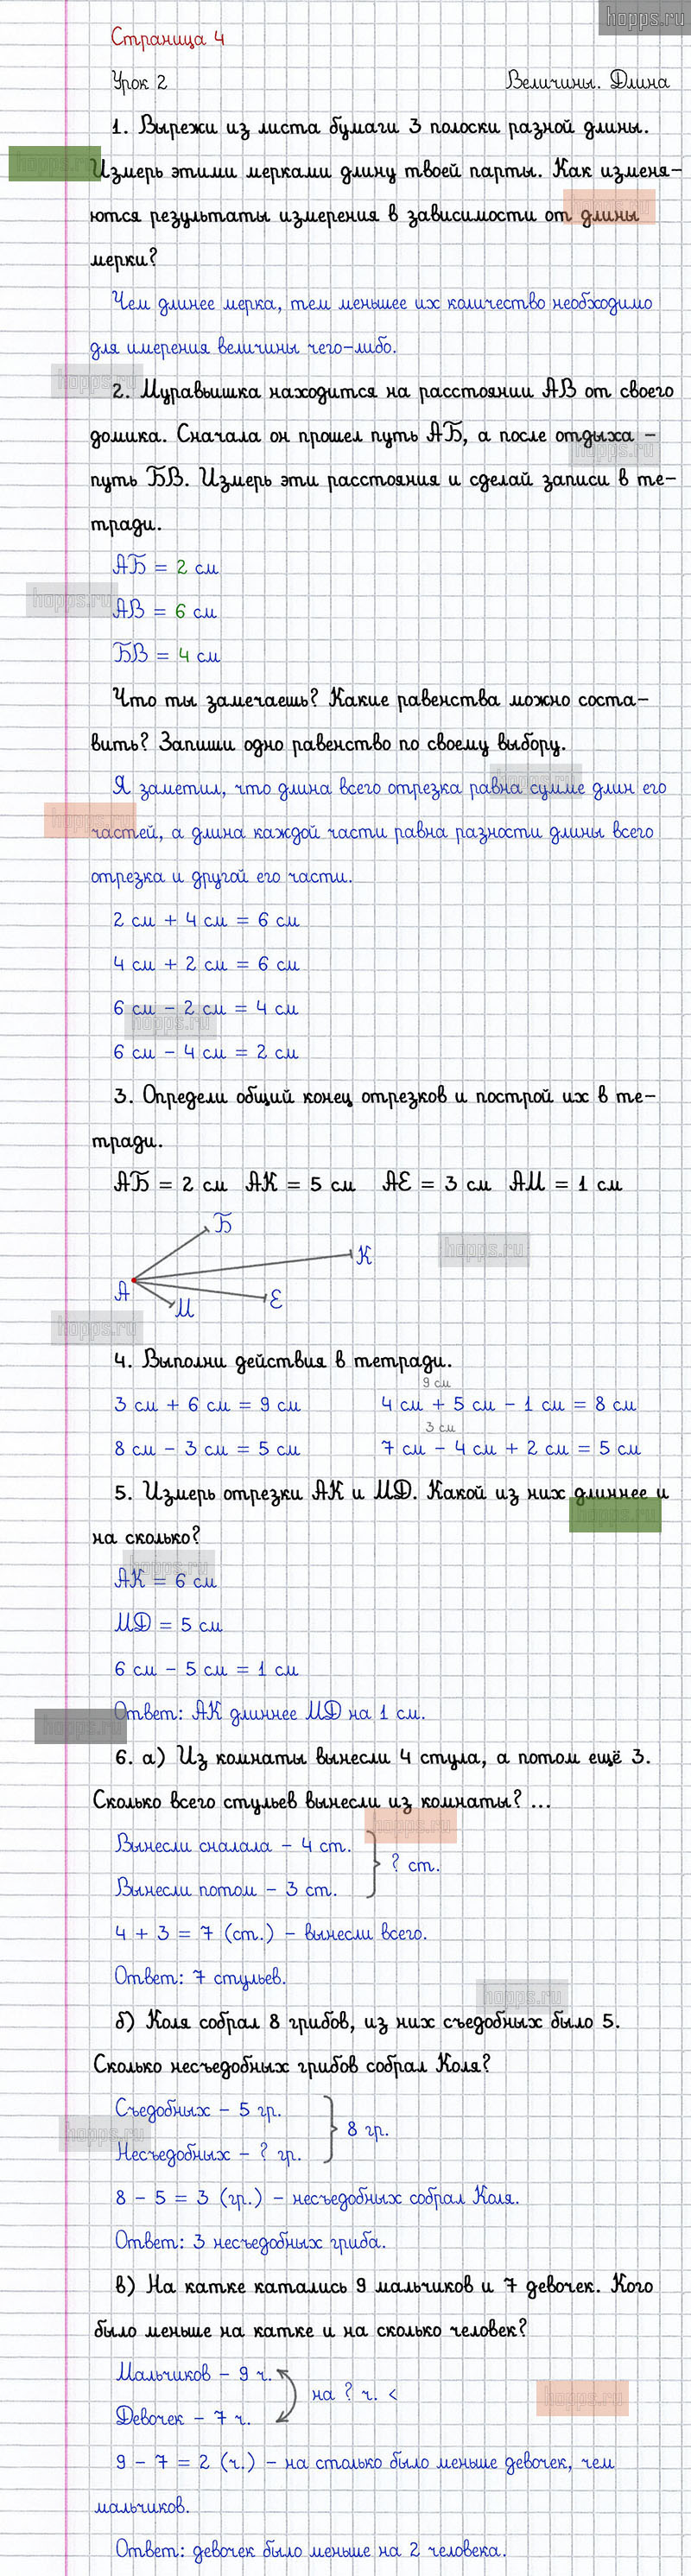 hopps.ru
Страница 4
Урок 2 Величины. Длина
1. Вырежи из листа бумаги 3 полоски разной длины.
Измерь этими мерками длину твоей парты. Как изменя-
ются результаты измерения в зависимости от длины
мерки?
Чем длинее мерка, тем меньшее их количество необходимо
для имерения величины чего-либо.
2. Муравьишка находится на расстоянии АВ от своего
домика. Сначала он прошел путь АБ, а после отдыха –
путь БВ. Измерь эти расстояния и сделай записи в те-
тради.
АБ = 2 см
АВ = 6 см
БВ = 4 см
Что ты замечаешь? Какие равенства можно соста-
вить? Запиши одно равенство по своему выбору.
Я заметил, что длина всего отрезка равна сумме длин его
частей, а длина каждой части равна разности длины всего
отрезка и другой его части.
2 см + 4 см = 6 см
4 см + 2 см = 6 см
6 см – 2 см = 4 см
6 см – 4 см = 2 см
3. Определи общий конец отрезков и построй их в те-
тради.
АБ = 2 см АК = 5 см АЕ = 3 см АМ = 1 см
Б
К
А
М
Е
4. Выполни действия в тетради.
9 см
3 см + 6 см = 9 см 4 см + 5 см – 1 см = 8 см
3 см
8 см – 3 см = 5 см 7 см – 4 см + 2 см = 5 см
5. Измерь отрезки АК и МД. Какой из них длиннее и
на сколько?
АК = 6 см
МД = 5 см
6 см – 5 см = 1 см
Ответ: АК длиннее МД на 1 см.
6. а) Из комнаты вынесли 4 стула, а потом ещё 3.
Сколько всего стульев вынесли из комнаты? ...
Вынесли сналала – 4 ст.
? ст.
Вынесли потом – 3 ст.
4 + 3 = 7 (ст.) – вынесли всего.
Ответ: 7 стульев.
б) Коля собрал 8 грибов, из них съедобных было 5.
Сколько несъедобных грибов собрал Коля?
Съедобных – 5 гр.
8 гр.
Несъедобных – ? гр.
8 – 5 = 3 (гр.) – несъедобных собрал Коля.
Ответ: 3 несъедобных гриба.
в) На катке катались 9 мальчиков и 7 девочек. Кого
было меньше на катке и на сколько человек?
Мальчиков – 9 ч.
на ? ч. <
Девочек – 7 ч.
9 – 7 = 2 (ч.) – на столько было меньше девочек, чем
мальчиков.
Ответ: девочек было меньше на 2 человека.